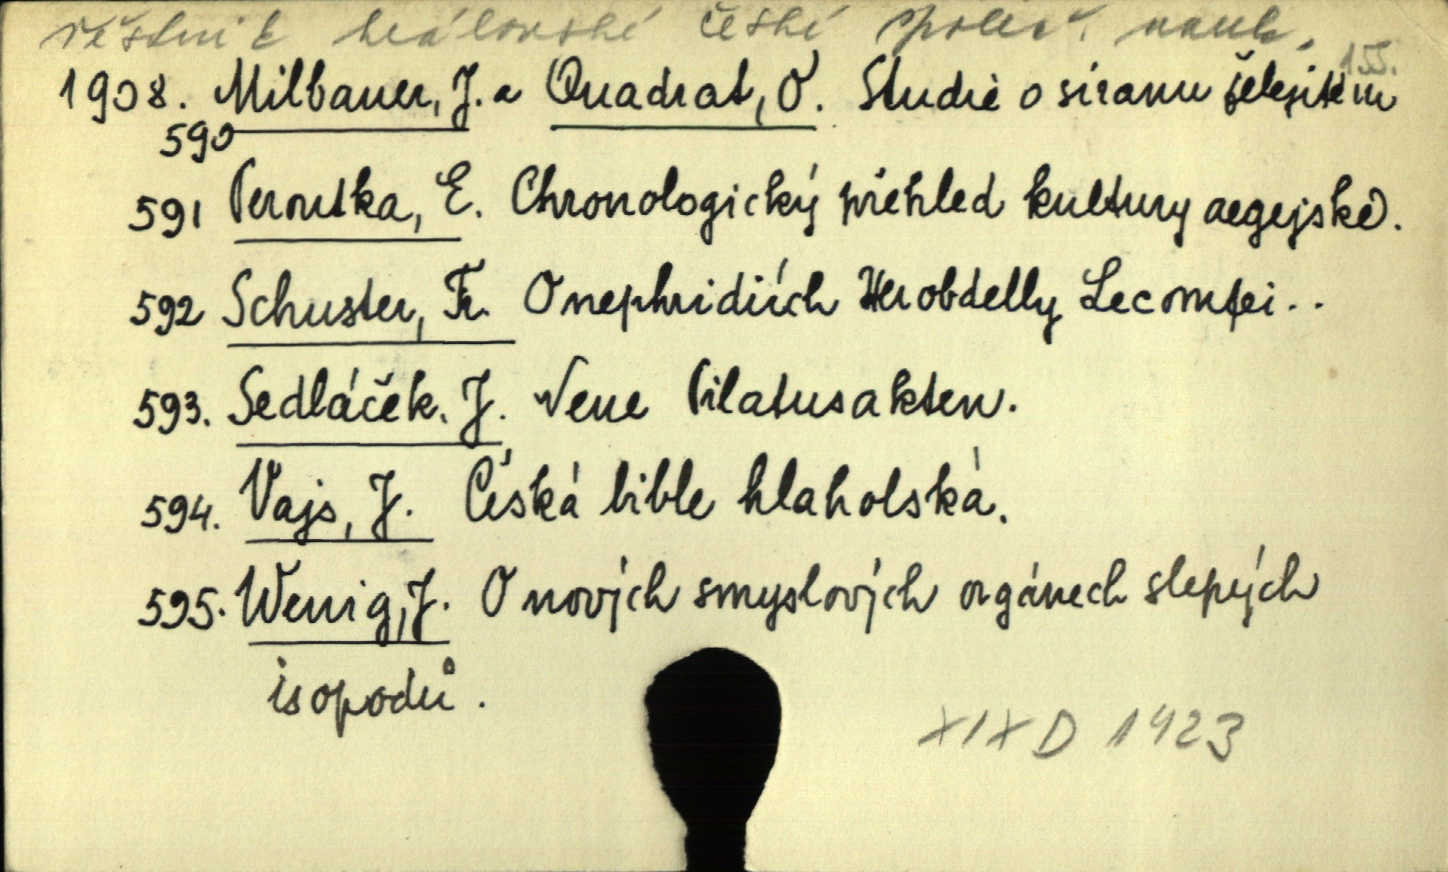 věstník královské české společ. nauk.
155.
1908. Milbauer, J. a Quadrat, O. Studie o síranu želejitém
590
591 Peroutka, E. Chronologický přehled kultury aegejské.
592 Schuster, Fr. O nephridiích Herobdelly Lecomtei..
593. Sedláček, J. Neue Pilatusakten.
594. Vajs, J. Česká bible hlaholská.
595. Wenig, J. O nových smyslových orgánech slepých
isopodů.
XIX D 1423